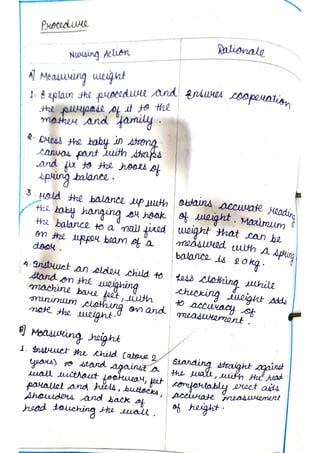 Procedure
Nursing Action
Rationale
A) Measuring weight
1. Explain the procedure and
the purpose of it to the
mother and family.
Ensures cooperation.
2. Dress the baby in strong
canvas pant with straps
and fix to the hooks of
spring balance.
3. Hold the balance up with
the baby hanging or hook
the balance to a nail fixed
on the upper beam of a
door.
obtains accurate reading
of weight. Maximum
weight that can be
measured with a spring
balance is 20kg.
4. Instruct an older child to
stand on the weighing
machine bare feet, with
minimum clothing on and
note the weight.
Less clothing while
checking weight adds
to accuracy of
measurement.
B) Measuring height
1. Instruct the child (above 2
years) to stand against a
wall without footwear, feet
parallel and heels, buttocks,
shoulders and back of
head touching the wall.
Standing straight against
the wall, with the head
comfortably erect aids
accurate measurement
of height.